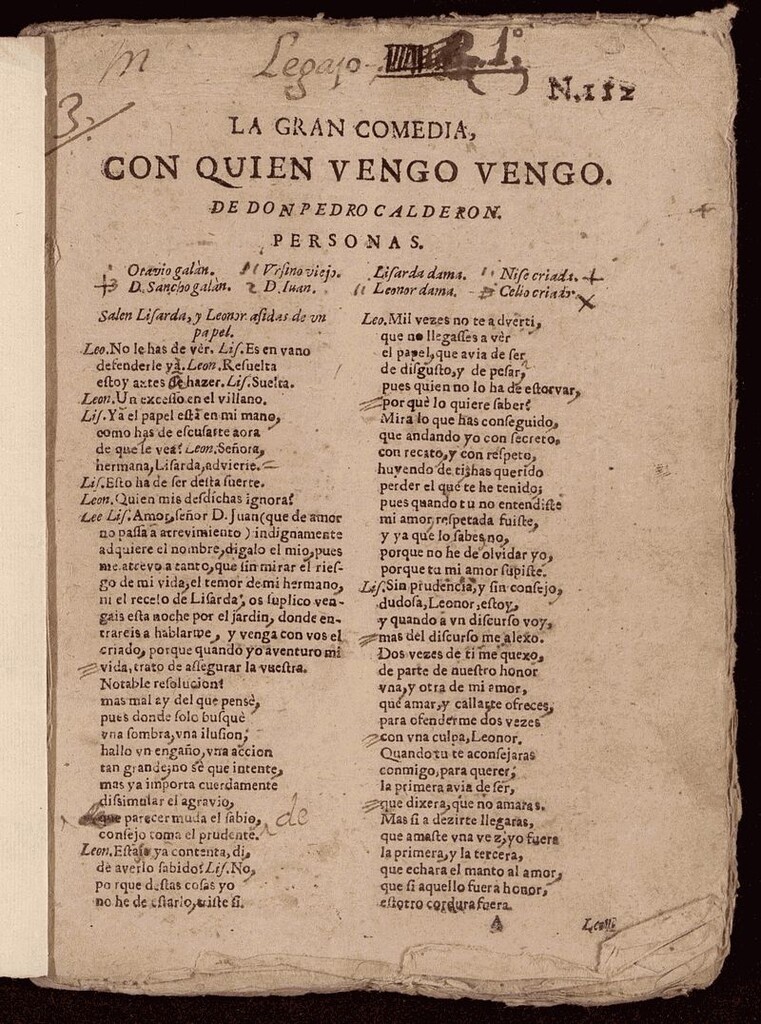 m Legajo 1º
N.152
3
LA GRAN COMEDIA,
CON QUIEN VENGO VENGO.
DE DON PEDRO CALDERON.
PERSONAS.
Otavio galàn. Vrsino viejo. Lisarda dama. Nise criada.
D. Sancho galàn. D. Iuan. Leonor dama. Celio criado.
Salen Lisarda, y Leonor asidas de vn
papel.
Leo. No le has de vèr. Lis. Es en vano
defenderle yà. Leon. Resuelta
estoy antes de hazer. Lis. Suelta.
Leon. Un excesso en el villano.
Lis. Ya el papel està en mi mano,
como has de escusarte aora
de que le vea? Leon. Señora,
hermana, Lisarda, advierte.
Lis. Esto ha de ser desta suerte.
Leon. Quien mis desdichas ignora?
Lee Lis. Amor, señor D. Juan (que de amor
no passa a atrevimiento) indignamente
adquiere el nombre, digalo el mio, pues
me atrevo a tanto, que sin mirar el ries-
go de mi vida, el temor de mi hermano,
ni el recelo de Lisarda, os suplico ven-
gais esta noche por el jardin, donde en-
trareis a hablarme, y venga con vos el
criado, porque quando yo aventuro mi
vida, trato de assegurar la vuestra.
Notable resolucion!
mas mal ay del que pensè,
pues donde solo busquè
vna sombra, vna ilusion,
hallo vn engaño, vna accion
tan grande; no sè que intente,
mas ya importa cuerdamente
dissimular el agravio,
que parecer muda el sabio, de
consejo toma el prudente.
Leon. Estàs ya contenta, di,
de averlo sabido? Lis. No,
porque destas cosas yo
no he de estarlo, triste si.
Leo. Mil vezes no te advertì,
que no llegasses a vèr
el papel, que avia de ser
de disgusto, y de pesar,
pues quien no lo ha de estorvar,
por què lo quiere saber?
Mira lo que has conseguido,
que andando yo con secreto,
con recato, y con respeto,
huyendo de ti, has querido
perder el que te he tenido;
pues quando tu no entendiste
mi amor, respetada fuiste,
y ya que lo sabes, no,
porque no he de olvidar yo,
porque tu mi amor supiste.
Lis. Sin prudencia, y sin consejo,
dudosa, Leonor, estoy,
y quando à vn discurso voy,
mas del discurso me alexo.
Dos vezes de ti me quexo,
de parte de nuestro honor
vna, y otra de mi amor,
que amar, y callarte ofreces,
para ofenderme dos vezes
con vna culpa, Leonor.
Quando tu te aconsejaras
conmigo, para querer,
la primera avia de ser,
que dixera, que no amaras.
Mas si a dezirte llegaras,
que amaste vna vez, yo fuera
la primera, y la tercera,
que echara el manto al amor,
que si aquello fuera honor,
estotro cordura fuera.
A